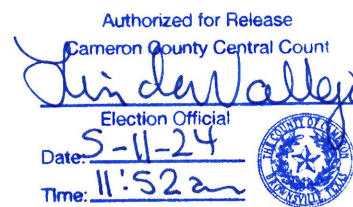 Authorized for Release
Cameron County Central Count
Linda Vallejo
Election Official
Date: 5-11-24
Time: 11:52am
THE COUNTY OF CAMERON
BROWNSVILLE, TEXAS